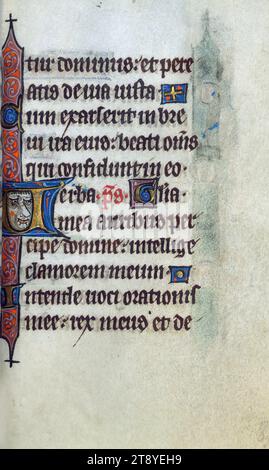 tur dominus: et pere
atis de via iusta
Cum exarserit in bre
vi ira eius: beati omnes
qui confidunt in eo
Verba. Ps. Gloria
mea auribus per
cipe domine: intellige
clamorem meum
Intende voci orationis
mee: rex meus et de
alamy
Image ID: 2T8YEH9
www.alamy.com